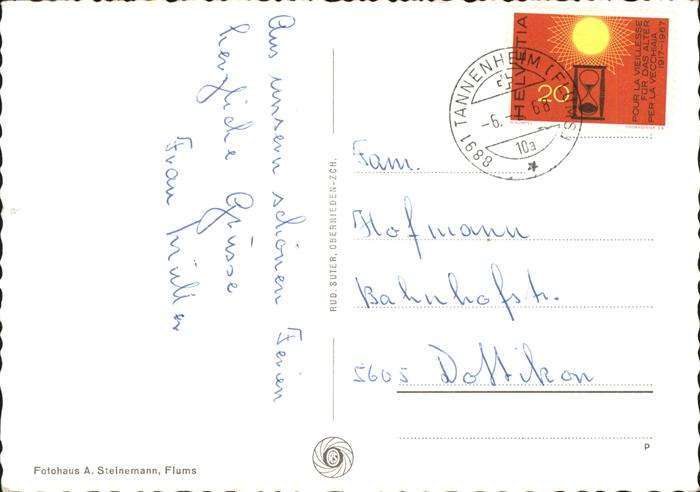 Aus unsern schönen Ferien
herzliche Grüsse
Frau Müller
RUD. SUTER, OBERRIEDEN-ZCH.
HELVETIA
20
POUR LA VIEILLESSE
FÜR DAS ALTER
PER LA VECCHIAIA
1917-1967
8891 TANNENHEIM (FLUMS)
-6.
68
10a
Fam.
Hofmann
Bahnhofstr.
5605 Dottikon
P
Fotohaus A. Steinemann, Flums